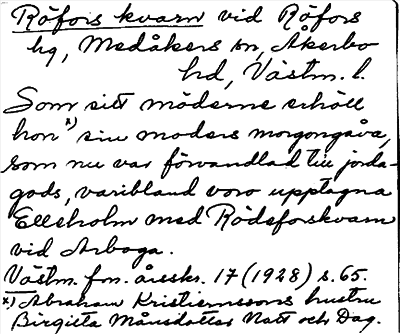 Röfors kvarn vid Röfors
hg, Medåkers sn, Åkerbo
hd, Västm. l.
Som sitt möderne erhöll
hon x) sin moders morgongåva,
som nu var förvandlad till jorda-
gods, varibland voro upptagna
Ellsholm med Rödsforskvarn
vid Arboga.
Västm. fm. årsskr. 17 (1928) s. 65.
x) Abraham Kristiernssons hustru
Birgitta Månsdotter Natt och Dag.